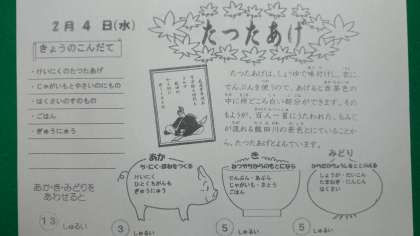 2月4日(水)
たつたあげ
きょうのこんだて
・けいにくのたつたあげ
・じゃがいもとやさいのにもの
・はくさいのすのもの
・ごはん
・ぎゅうにゅう
たつたあげは、しょうゆで味付けし、衣に
でんぷんを使うので、あげると赤茶色の
中に所どころ白い部分ができます。その
もようが、百人一首にうたわれた、もみじ
が流れる龍田川の景色とにていることか
ら、たつたあげとよんでいます。
あか
ち・にく・ほねをつくる
けいにく
ひとくちがんも
ぎゅうにゅう
き
ねつやちからのもとになる
でんぷん・あぶら
じゃがいも・さとう
ごはん
みどり
からだのちょうしをととのえる
しょうが・だいこん
たまねぎ・にんじん
はくさい
あか・き・みどりを
あわせると
13 しゅるい
3 しゅるい
5 しゅるい
5 しゅるい